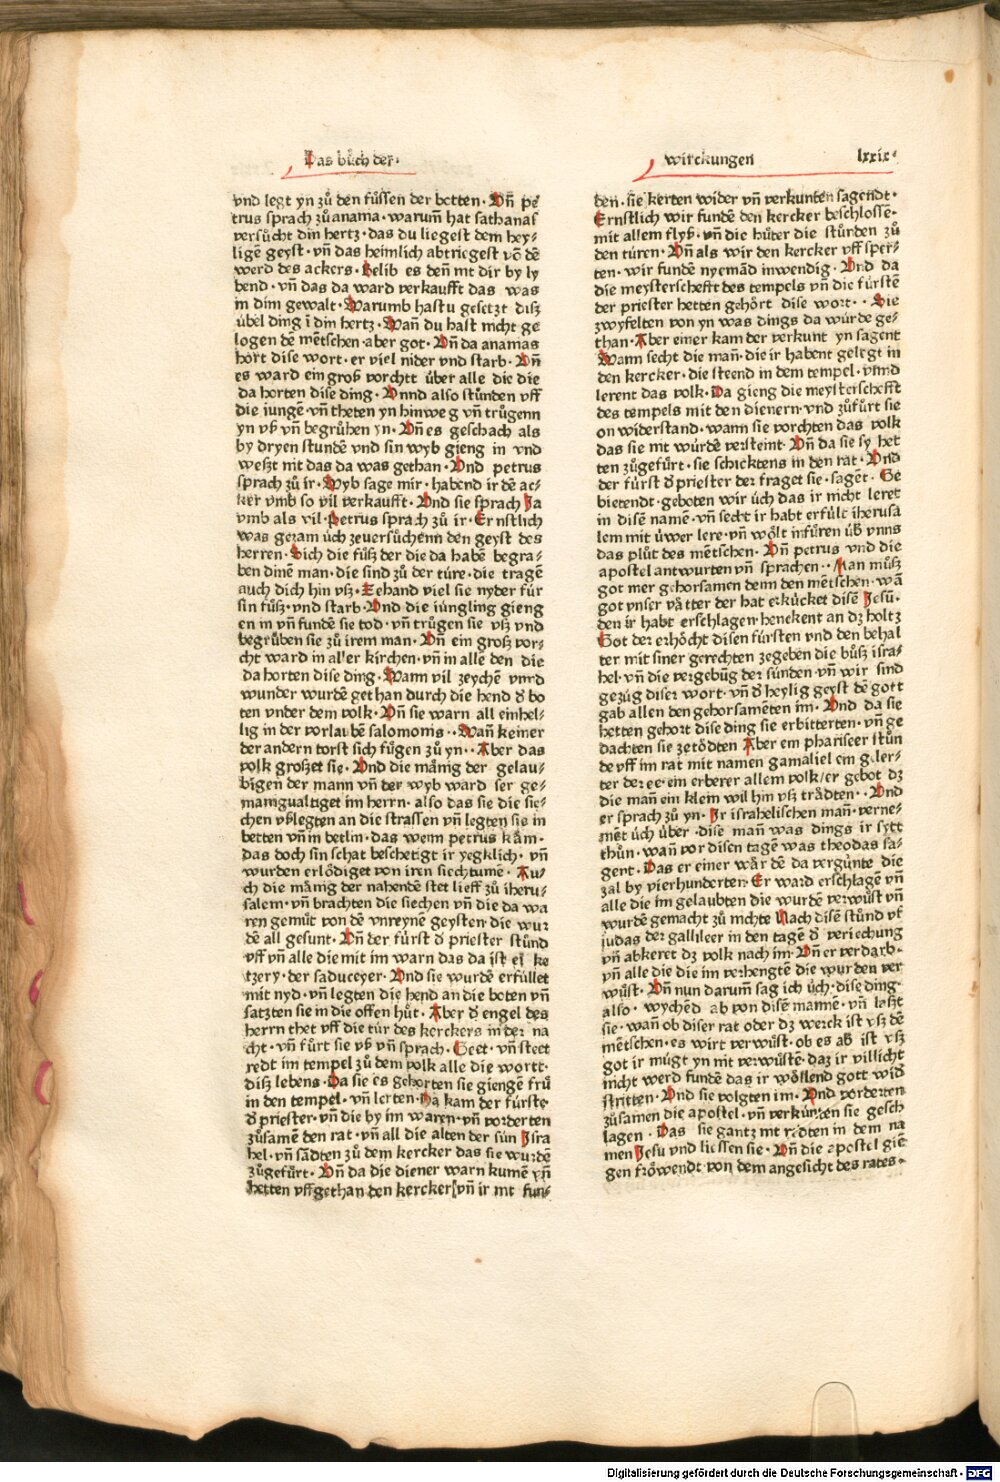 Das bůch der·
wirckungen
lxxix·
vnd legt yn zů den fůſſen der botten· Vn̄ pe
trus ſprach zů anama·warum̄ hat ſathanas
verſůcht din hertz·das du liegeſt dem hey⸗
ligē geyſt·vn̄ das heimlich abtriegeſt võ dē
werd des ackers·Belib es den̄ nit dir by ly
bend·vn̄ das da ward verkaufft das was
in dim gewalt·Warumb haſtu geſetzt diſz
übel ding ī din hertz·Wan̄ du haſt nicht ge
logen dē mētſchen·aber got·Vn̄ da anamas
hort diſe wort·er viel nider vnd ſtarb·Vn̄
es ward ein groß vorchtt über alle die die
da horten diſe ding·Vnnd alſo ſtůnden vff
die jungē·vn̄ theten yn hinweg vn̄ trůgenn
yn vß vn̄ begrůben yn·Vn̄ es geſchach als
by dryen ſtundē vnd ſin wyb gieng in vnd
weſzt nit das da was gethan·Vnd petrus
ſprach zů ir·Wyb ſage mir·habend ir dē ac⸗
ker vmb ſo vil verkaufft·Vnd ſie ſprach Ja
vmb als vil·Petrus ſprach zů ir·Ernſtlich
was gezam üch zeuerſůchenn den geyſt des
herren·Sich die fůſz der die da habē begra⸗
ben dinē man·die ſind zů der türe·die tragē
auch dich hin vſz·Zehand viel ſie nyder für
ſin fůſz·vnd ſtarb·Vnd die iüngling gieng
en in vn̄ fundē ſie tod·vn̄ trůgen ſie vſz vnd
begrůben ſie zů irem man·Vn̄ ein groſz vor⸗
cht ward in aller kirchen·vn̄ in alle den die
da horten diſe ding·Wann vil zeychē vnnd
wunder wurdē gethan durch die hend d̓ bo
ten vnder dem volk·Vn̄ ſie warn all einhel⸗
lig in der vorlaubē ſalomonis··Wan̄ keiner
der andern torſt ſich fůgen zů yn··Aber das
volk groſzet ſie·Vnd die mānig der gelau⸗
bigen der mann vn̄ der wyb ward ſer ge⸗
manigualtiget im herrn·alſo das ſie die ſie⸗
chen vßlegten an die ſtraſſen vn̄ legten ſie in
betten vn̄ in betlin·das wenn petrus kām·
das doch ſin ſchat beſchetigt ir yegklich·vn̄
wurden erlödiget von iren ſiechtumē·Au⸗
ch die mānig der nahendē ſtet lieff zů iheru⸗
ſalem·vn̄ brachten die ſiechen vn̄ die da wa
ren gemüt von dē vnreynē geyſten·die wur
dē all geſunt·Vn̄ der fürſt d̓ prieſter ſtůnd
vff vn̄ alle die mit im warn das da iſt ei ke
tzery·der ſaduceyer·Vnd ſie wurdē erfüllet
mit nyd·vn̄ legten die hend an die boten vn̄
ſatzten ſie in die offen hůt·Aber d̓ engel des
herrn thet vff die tür des kerckers in der na
cht·vn̄ fürt ſie vß vn̄ ſprach·Geet·vn̄ ſteet
redt im tempel zů dem volk alle die wortt·
diſz lebens·Da ſie es gehorten ſie giengē frů
in den tempel·vn̄ lerten·Da kam der fürſte
d̓ prieſter·vn̄ die by im waren·vn̄ vorderten
zůſamē den rat·vn̄ all die alten der ſün Jſra
hel·vn̄ ſādten zů dem kercker das ſie wurdē
zůgefürt·Vn̄ da die diener warn kumē vn̄
hetten vffgethan den kercker vn̄ ir nit fun⸗
den·ſie kerten wider vn̄ verkunten ſagendt·
Ernſtlich wir fundē den kercker beſchloſſē·
mit allem flyß·vn̄ die hůter die ſtůnden zů
den türen·Vn̄ als wir den kercker vff ſper⸗
ten·wir fundē nyemād inwendig·Vnd da
die meyſterſchefft des tempels vn̄ die fürſtē
der prieſter hetten gehört diſe wort··Sie
zwyfelten von yn was dings da würde ge⸗
than·Aber einer kam der verkunt yn ſagent
Wann ſecht die man̄·die ir habent gelegt in
den kercker·die ſteend in dem tempel·vnnd
lerent das volk·Da gieng die meyſterſchefft
des tempels mit den dienern·vnd zůfůrt ſie
on widerſtand·wann ſie vorchten das volk
das ſie nit würdē verſteint·Vn̄ da ſie ſy het
ten zůgefürt·ſie ſchicktens in den rat·Vnd
der fürſt d̓ prieſter der fraget ſie·ſagēt·Ge
bietendt·geboten wir üch das ir nicht leret
in diſē namē·vn̄ ſecht ir habt erfült iheruſa
lem mit üwer lere·vn̄ wölt infüren üb̓ vnns
das plůt des mētſchen·Vn̄ petrus vnd die
apoſtel antwurten vn̄ ſprachen··Man můſz
got mer gehorſamen denn den mētſchen·wā
got vnſer vätter der hat erkücket diſē Jeſū·
den ir habt erſchlagen·henckent an dz holtz
Got der erhöcht diſen fürſten vnd den behal
ter mit ſiner gerechten zegeben die bůſz iſra⸗
hel·vn̄ die vergebūg der ſünden·vn̄ wir ſind
gezüg diſer wort·vn̄ d̓ heylig geyſt dē gott
gab allen den gehorſamēten im·Vnd da ſie
hetten gehort diſe ding ſie erbitterten·vn̄ ge
dachten ſie zetödten Aber ein phariſeer ſtůn
de vff im rat mit namen gamaliel ein geler⸗
ter der ee·ein erberer allem volk/er gebot dz
die man̄ ein klein wil hin vſz trādten··Vnd
er ſprach zů yn·Jr iſraheliſchen man̄·verne⸗
mēt üch über·diſe man̄ was dings ir ſytt
thůn·wan̄ vor diſen tagē was theodas ſa⸗
gent·Das er einer wär dē da vergünte die
zal by vierhunderten·Er ward erſchlagē vn̄
alle die im gelaubten die wurdē verwůſt vn̄
wurdē gemacht zů nichte Nach diſē ſtůnd vf
judas der gallileer in den tagē d̓ veriechung
vn̄ abkeret dz volk nach im·Vn̄ er verdarb·
vn̄ alle die die im verhengtē die wurden ver
wůſt·Vn̄ nun darum̄ ſag ich üch·diſe ding·
alſo·wychēd ab von diſē mannē·vn̄ laſzt
ſie·wan̄ ob diſer rat oder dz werck iſt vſz dē
mētſchen·es wirt verwůſt·ob es ab̓ iſt vſz
got ir mügt yn nit verwůſtē·daz ir villicht
nicht werd fundē das ir wöllend gott wid̓
ſtritten·Vnd ſie volgten im·Vnd vorderten
zůſamen die apoſtel·vn̄ verkünten ſie geſch
lagen·Das ſie gantz nit redten in dem na
men Jeſu vnd lieſſen ſie·Vn̄ die apoſtel giē
gen fröwendt von dem angeſicht des rates·
Digitalisierung gefördert durch die Deutsche Forschungsgemeinschaft · DFG